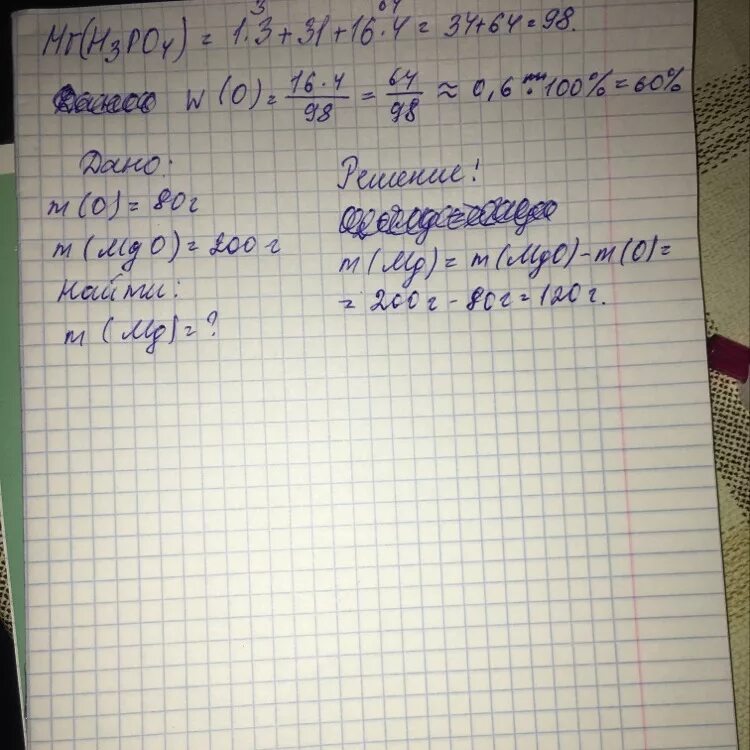 3 64
Mr(H₃PO₄) = 1·3+31+16·4 = 34+64 = 98.
w(O) = 16·4/98 = 64/98 ≈ 0,6 · 100% = 60%
Дано:
m(O) = 80г
m(MgO) = 200г
Найти:
m(Mg) = ?
Решение!
m(Mg) = m(MgO) - m(O) =
= 200г - 80г = 120г.